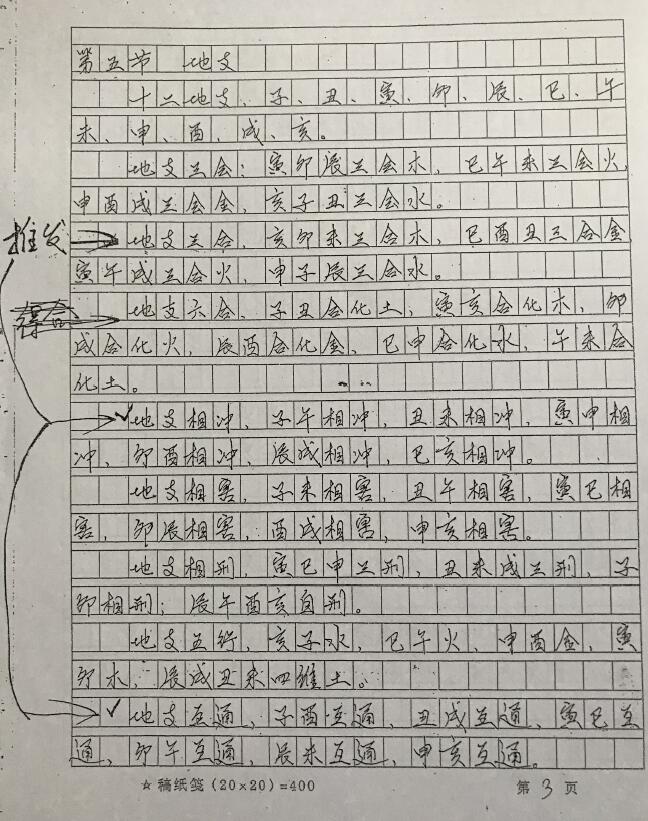 第五节 地支
十二地支、子、丑、寅、卯、辰、巳、午
未、申、酉、戌、亥。
地支三会：寅卯辰三会木，巳午未三会火，
申酉戌三会金，亥子丑三会水。
推发
地支三合，亥卯未三合木，巳酉丑三合金
寅午戌三合火，申子辰三合水。
地支六合，子丑合化土，寅亥合化木，卯
戌合化火，辰酉合化金，巳申合化水，午未合
化土。
地支相冲，子午相冲，丑未相冲，寅申相
冲，卯酉相冲，辰戌相冲，巳亥相冲。
地支相害，子未相害，丑午相害，寅巳相
害，卯辰相害，酉戌相害，申亥相害。
地支相刑，寅巳申三刑，丑未戌三刑，子
卯相刑；辰午酉亥自刑。
地支五行，亥子水，巳午火，申酉金，寅
卯木，辰戌丑未四维土。
地支互通，子酉互通，丑戌互通，寅巳互
通，卯午互通，辰未互通，申亥互通。
☆稿纸笺(20×20)=400 第3页